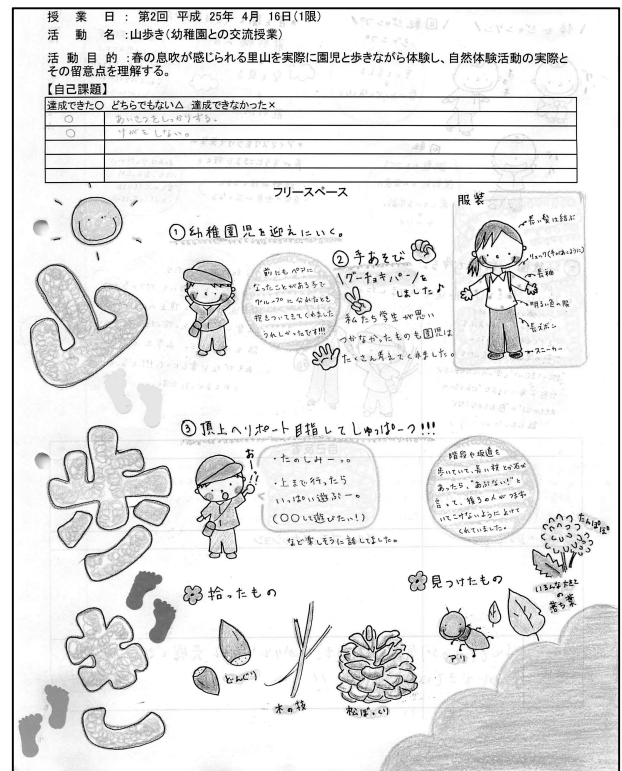 授 業 日 : 第2回 平成 25年 4月 16日(1限)
活 動 名 :山歩き(幼稚園との交流授業)
活 動 目 的 :春の息吹が感じられる里山を実際に園児と歩きながら体験し、自然体験活動の実際と
その留意点を理解する。
【自己課題】
達成できた○ どちらでもない△ 達成できなかった×
○ あいさつをしっかりする。
○ けがをしない。
フリースペース
山歩き
①幼稚園児を迎えにいく。
前にもペアに
なったことがある子で
グループになれたとき
抱きついてきてくれました
うれしかったです!!!
②手あそび
\グーチョキパー/を
しました♪
私たち学生が思い
つかなかったものも園児は
たくさん考えてくれました。
服装
長い髪は結ぶ
リュック(手があくように)
長袖
明るい色の服
長ズボン
スニーカー
③頂上ヘリポート目指してしゅっぱーつ!!!
おー!!
・たのしみーっ。
・上まで行ったら
いっぱい遊ぶー。
(○○して遊びたい!)
など楽しそうに話してました。
階段や坂道を
歩いていて、長い枝とか石が
あったら、"あぶない!"と
言って、後ろの人がつまず
いてこけないようによけて
くれていました。
たんぽぽ
いろんな大きさ
の
落ち葉
拾ったもの
どんぐり
木の枝
松ぼっくり
見つけたもの
アリ